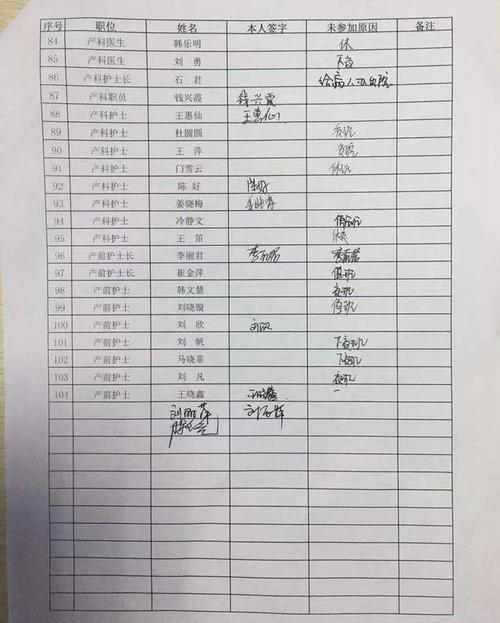 序号 职位 姓名 本人签字 未参加原因 备注
84 产科医生 韩乐明 休
85 产科医生 刘勇 下夜
86 产科护士长 石君 给病人办出院
87 产科职员 钱兴霞 钱兴霞
88 产科护士 王惠仙 王惠仙
89 产科护士 杜圆圆 夜班
90 产科护士 王萍 夜班
91 产科护士 门雪云 休班
92 产科护士 陈好 陈好
93 产科护士 姜晓梅 姜晓梅
94 产科护士 冷静文
95 产科护士 王笛
96 产前护士长 李丽君
97 产前护士长 崔金萍 值班
98 产前护士 韩文慧 夜班
99 产前护士 刘晓璇 值班
100 产前护士 刘欣 刘欣
101 产前护士 刘帆 下夜班
102 产前护士 马晓菲 下夜班
103 产前护士 刘凡 夜班
104 产前护士 王晓鑫 王晓鑫